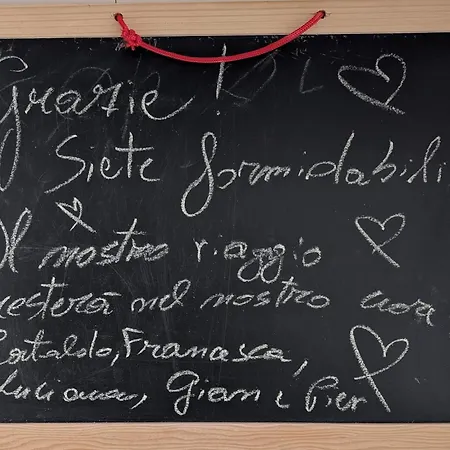 Grazie!
Siete formidabili
Il nostro viaggio
resterà nel nostro cuore
Cataldo, Francesca,
Luciana, Gianni Pier